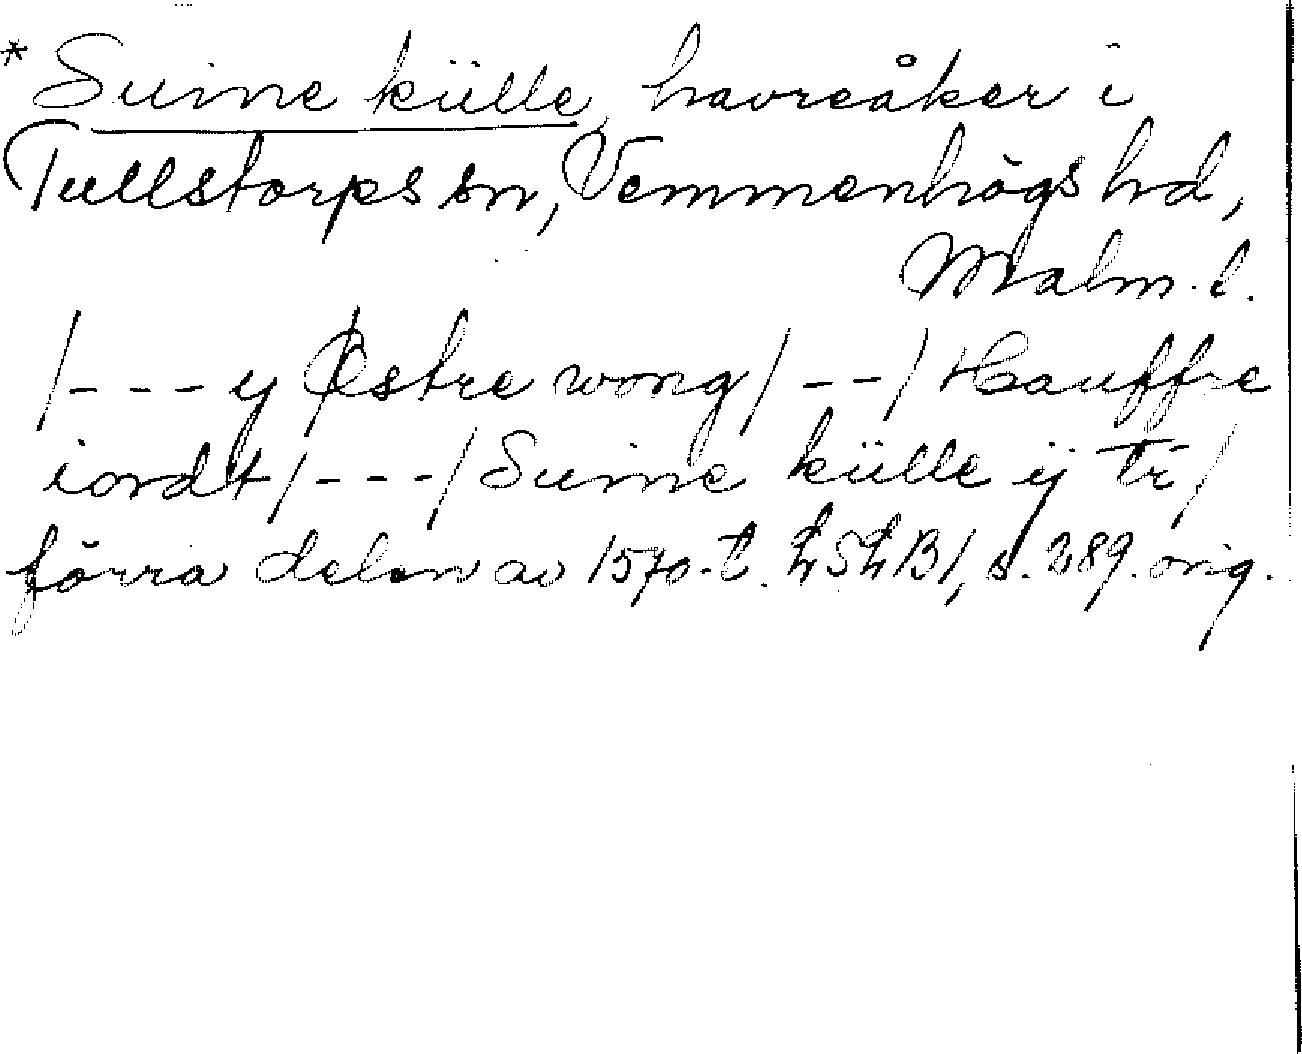 * Suine külle, havreåker i
Tullstorps sn, Vemmenhögs hd,
Malm. l.
/--- y Østre wong/--/ Hauffre
iordt/---/ Suine külle ÿ tr/
förra delen av 1570-t. LSLB1, s. 289. orig.